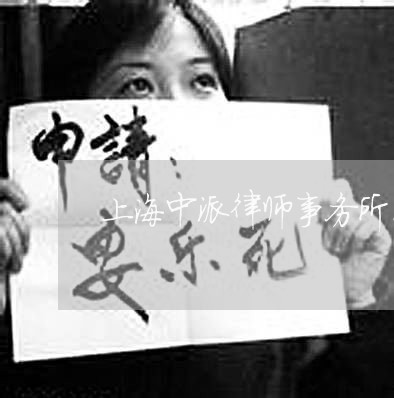 申請：
上海中派律师事务所
安乐死